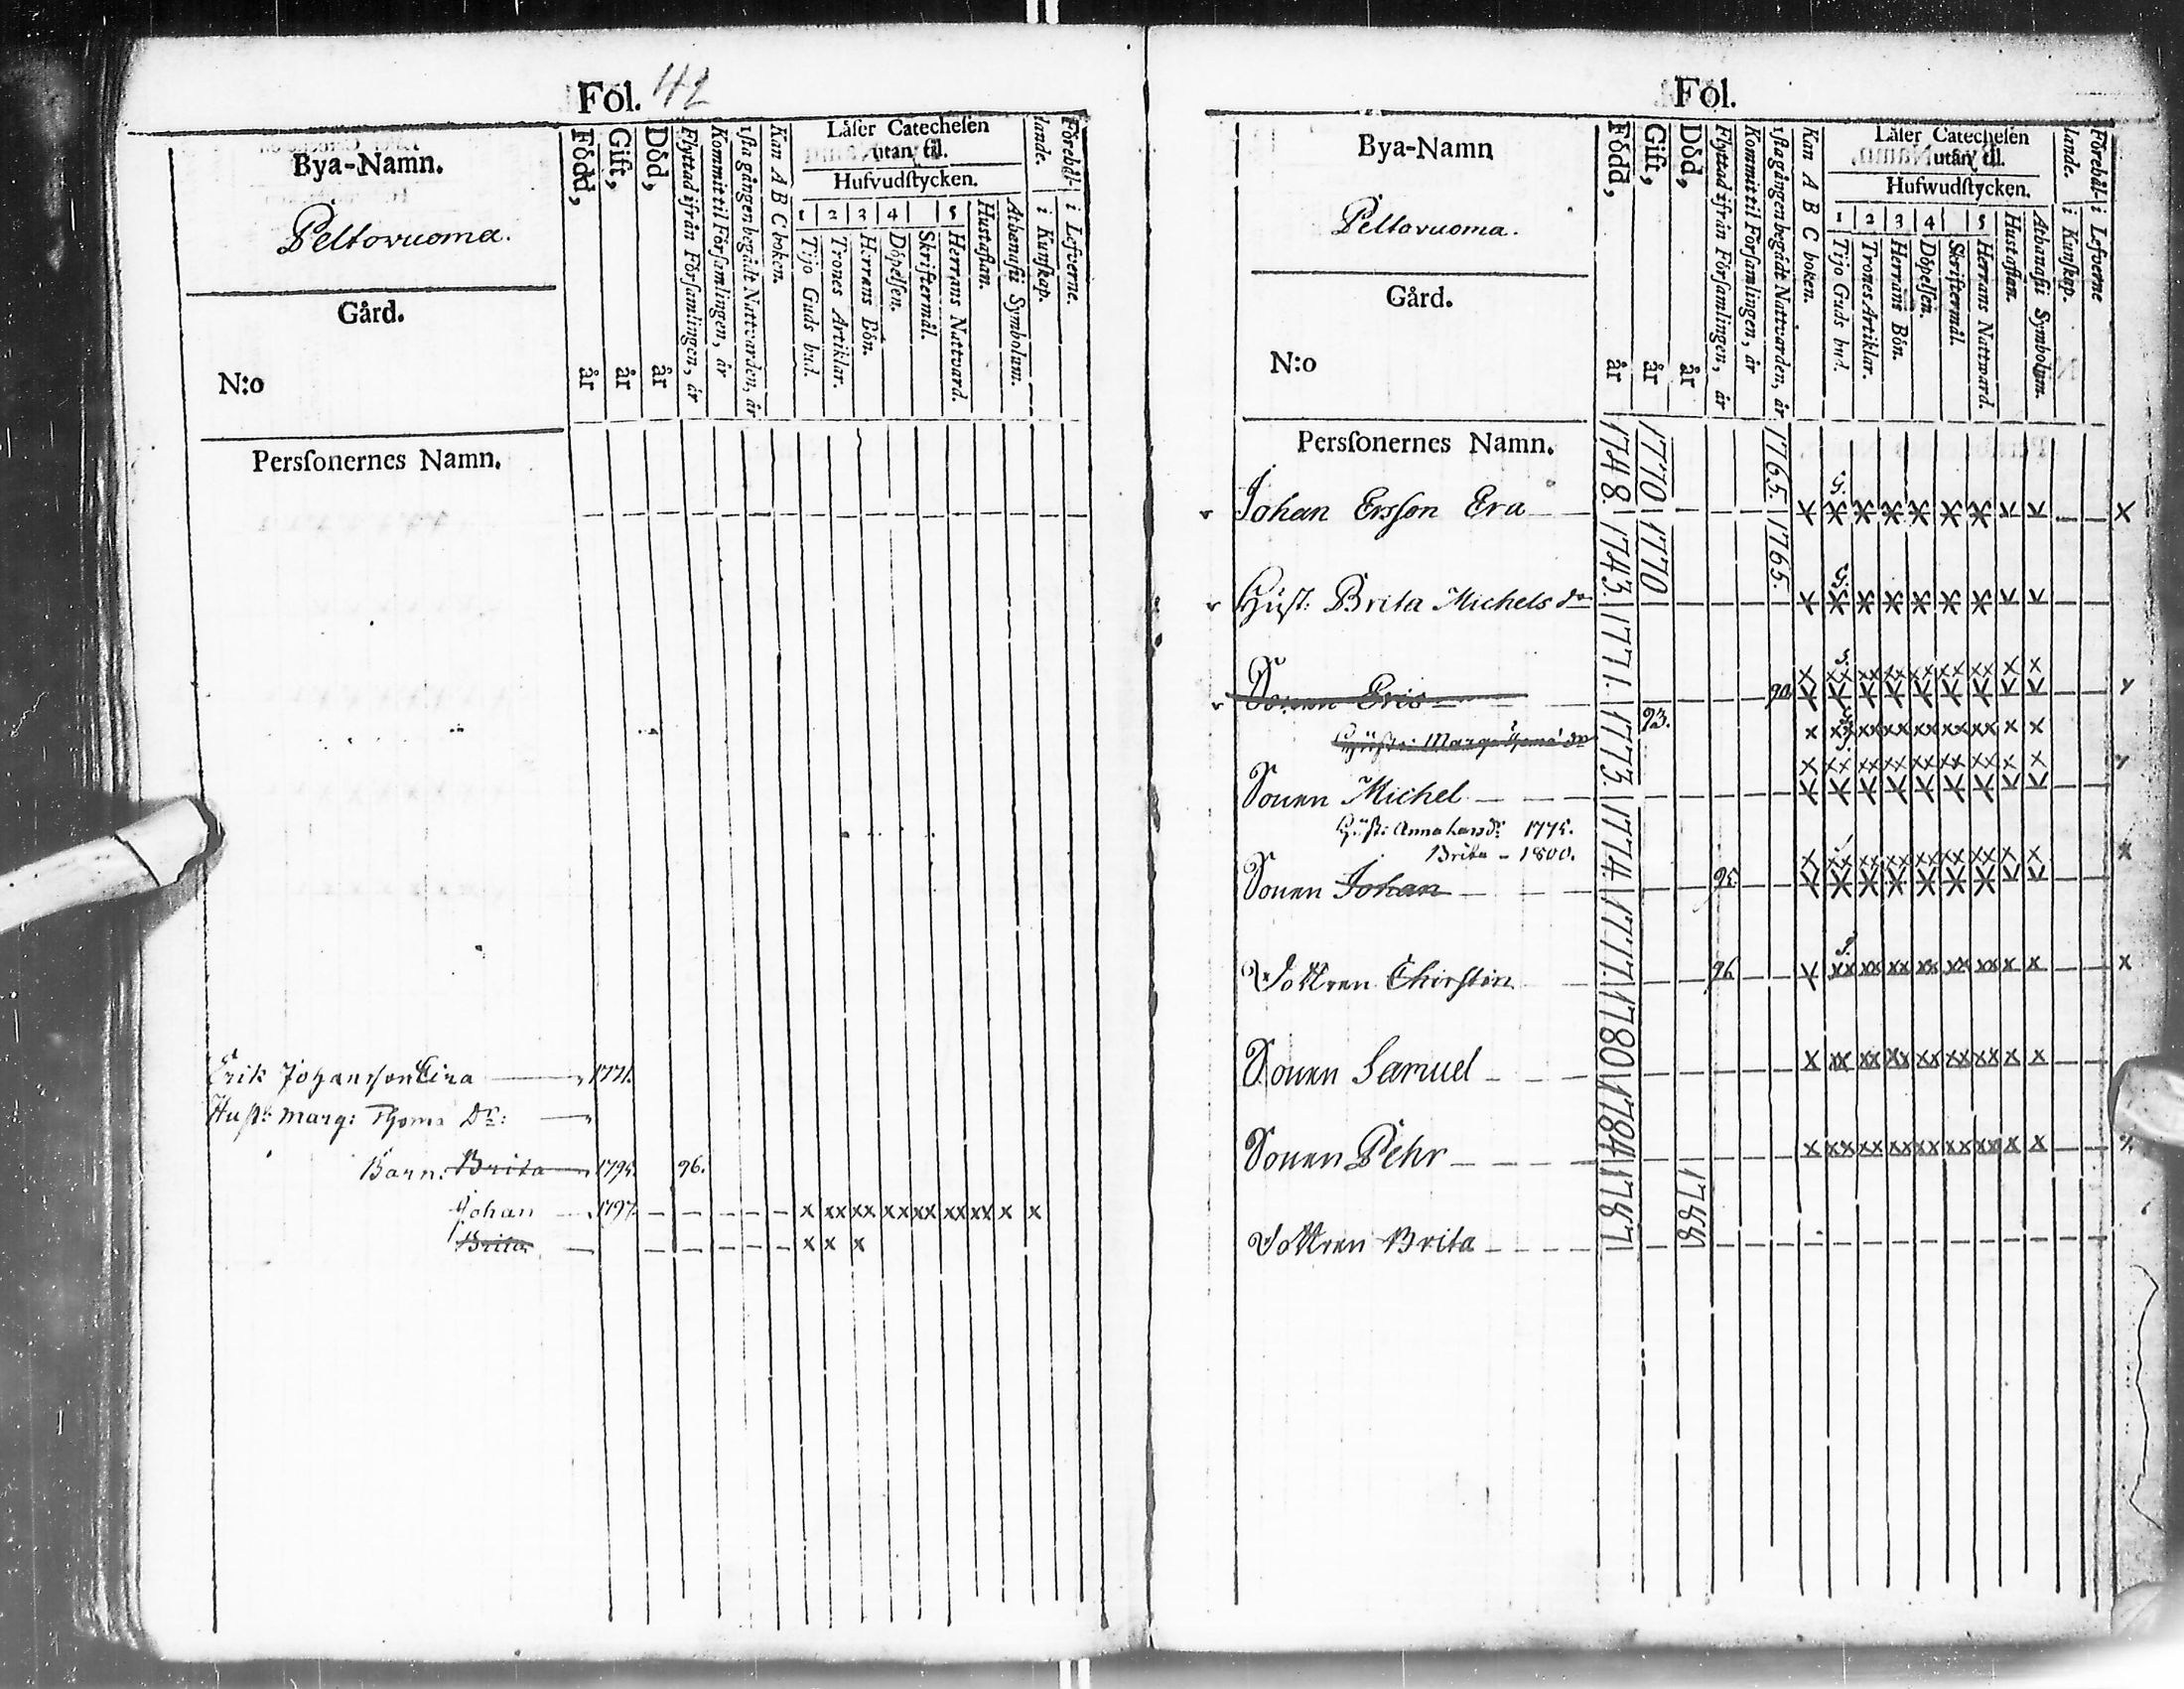 Fol. 42
Bya-Namn.
Peltovuoma.
Gård.
N:o
Persſonernes Namn.
Född, år
Gift, år
Död, år
Flyttad ifrån Förſamlingen, år
Kommit til Förſamlingen, år
1ſta gången begådt Nattvarden, år
Kan A B C boken.
Låſer Catecheſen
utan til.
Hufvudſtycken.
1 2 3 4 5
Tijo Guds bud.
Trones Artiklar.
Herrans Bön.
Döpelſen.
Skriftermål.
Herrans Nattvard.
Huſtaflan.
Athanaſii Symbolum.
Förehål-
lande.
i Kunſkap.
i Lefverne.
Erik Johansson Eira 1771.
Hust: Marg: Thoma Dr:
Barn: Brita 1795. 96.
Johan 1797. x xx xx xx xx xx xx x x
Brita x x x
Fol.
Bya-Namn
Peltovuoma.
Gård.
N:o
Persſonernes Namn.
Född, år
Gift, år
Död, år
Flyttad ifrån Förſamlingen, år
Kommit til Förſamlingen, år
1ſta gången begådt Nattvarden, år
Kan A B C boken.
Låſer Catecheſen
utan til.
Hufwudſtycken.
1 2 3 4 5
Tijo Guds bud.
Trones Artiklar.
Herrans Bön.
Döpelſen.
Skriftermål.
Herrans Nattward.
Huſtaflan.
Athanaſii Symbolum.
Förehål-
lande.
i Kunſkap.
i Lefverne
Johan Ersſon Era 1748. 1770 1765. g.
Huſt: Brita Michels dr 1743. 1770 1765. g.
Sonen Eric 1771. 90
Huſtr: Marg. Thoma dr 93.
Sonen Michel 1773.
Huſt: Anna Larsdr 1775.
Brita - 1800.
Sonen Johan 1774. 95
Dottren Chirſtin 1777. 96
Sonen Samuel 1780 x xx xx xx xx xx xx x x
Sonen Pehr 1784 x xx xx xx xx xx xx x x
Dottren Brita 1787 1788